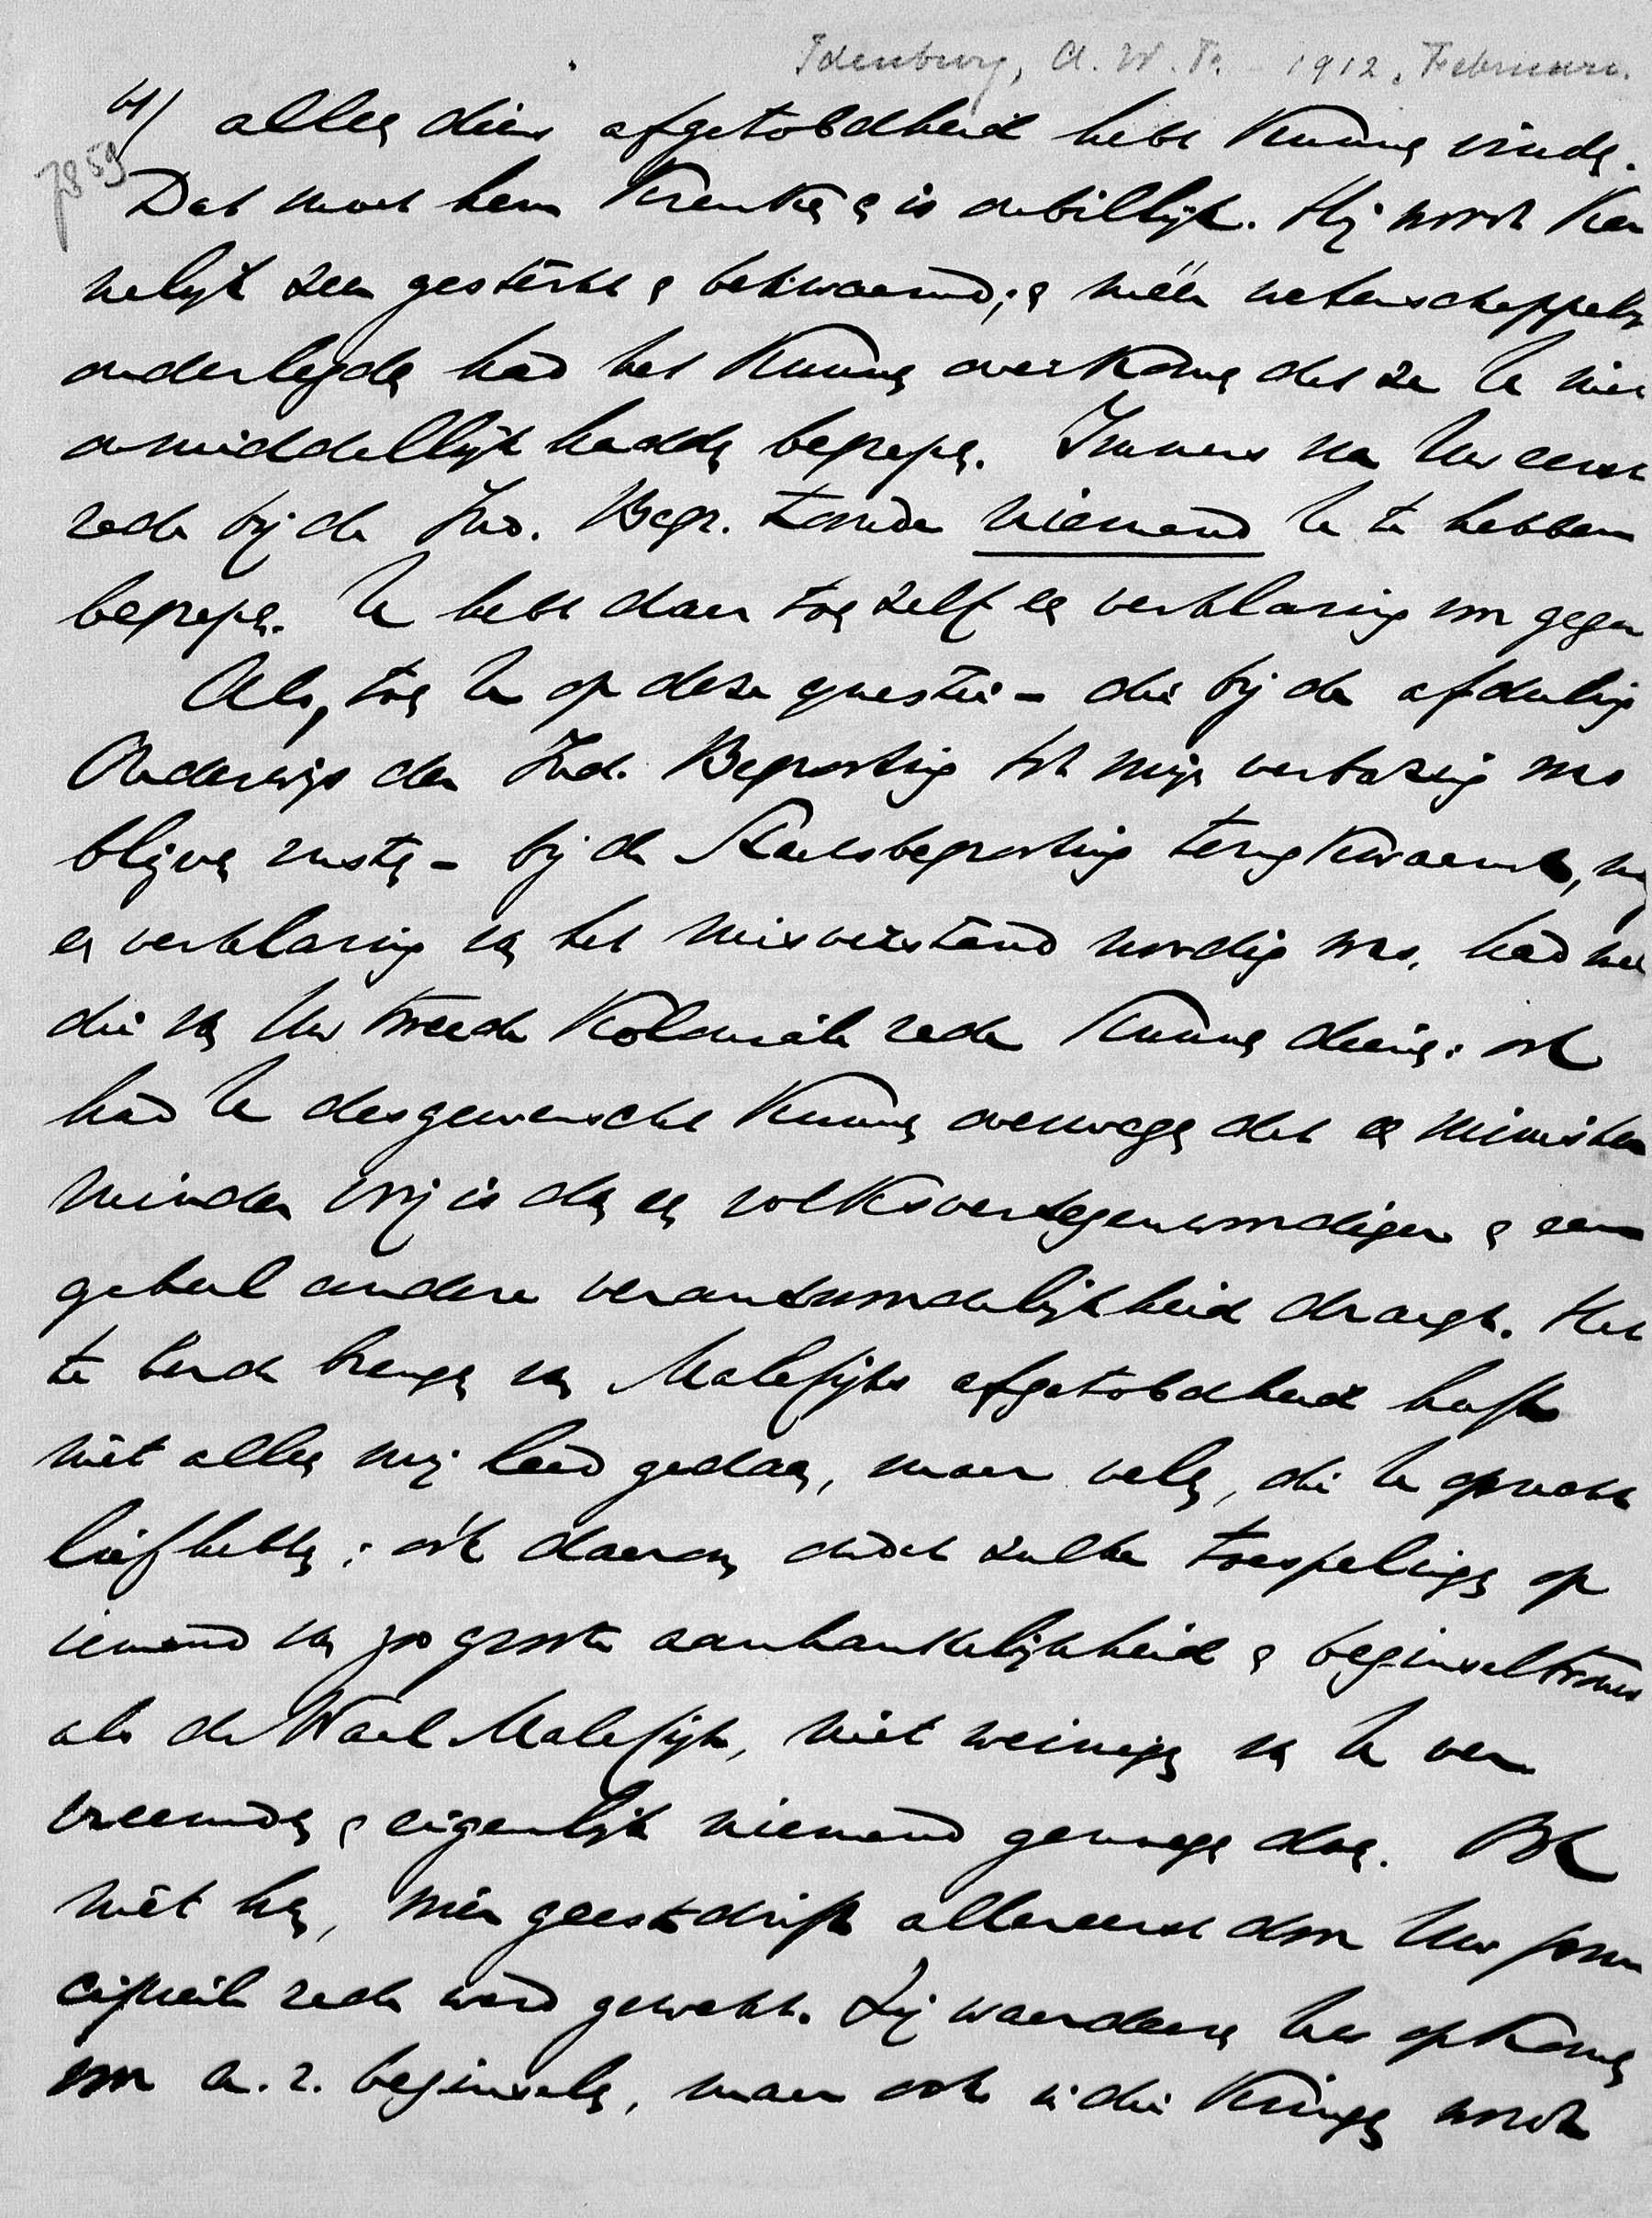 Idenburg, A. W. F. - 1912, Februari.
4/ alleen diens afgetobdheid hebt kunnen vinden.
7859
Dat moet hem krenken en is onbillijk. Hij wordt ken
nelijk zeer gesterkt en bekwaamd; en méér wetenschappelijk
onderlegden had het kunnen overkomen dat ze U niet
onmiddellijk hadden begrepen. Immers na Uw eerste
rede bij de Ind. Begr. toonde niemand U te hebben
begrepen. U hebt daar toen zelf een verklaring van gegeven
Als, toen U op deze questie - die bij de afdeling
Onderwijs der Ind. Begrooting tot mijn verbazing was
blijven rusten - bij de Staatsbegrooting terugkwaamt, nog
een verklaring van het misverstand noodig was, had wel
die van Uw tweede Koloniale rede kunnen dienen: ook
had U desgewenscht kunnen overwegen dat een minister
minder vrij is dan een volksvertegenwoordiger en een
geheel andere verantwoordelijkheid draagt. Het
te berde brengen van Malefijts afgetobdheid heeft
niet alleen mij leed gedaan, maar velen, die U oprecht
liefhebben; óók daarom omdat zulke toespelingen op
iemand van zoo groote aanhankelijkheid en beginseltrouw
als de Waal Malefijt, niet weinigen van U ver
vreemden en eigenlijk niemand genoegen doen. Ook
niet hen, wier geestdrift allereerst door Uw prin
cipieele rede werd gewekt. Zij waardeeren het opkomen
voor a.r. beginselen, maar ook in die kringen wordt